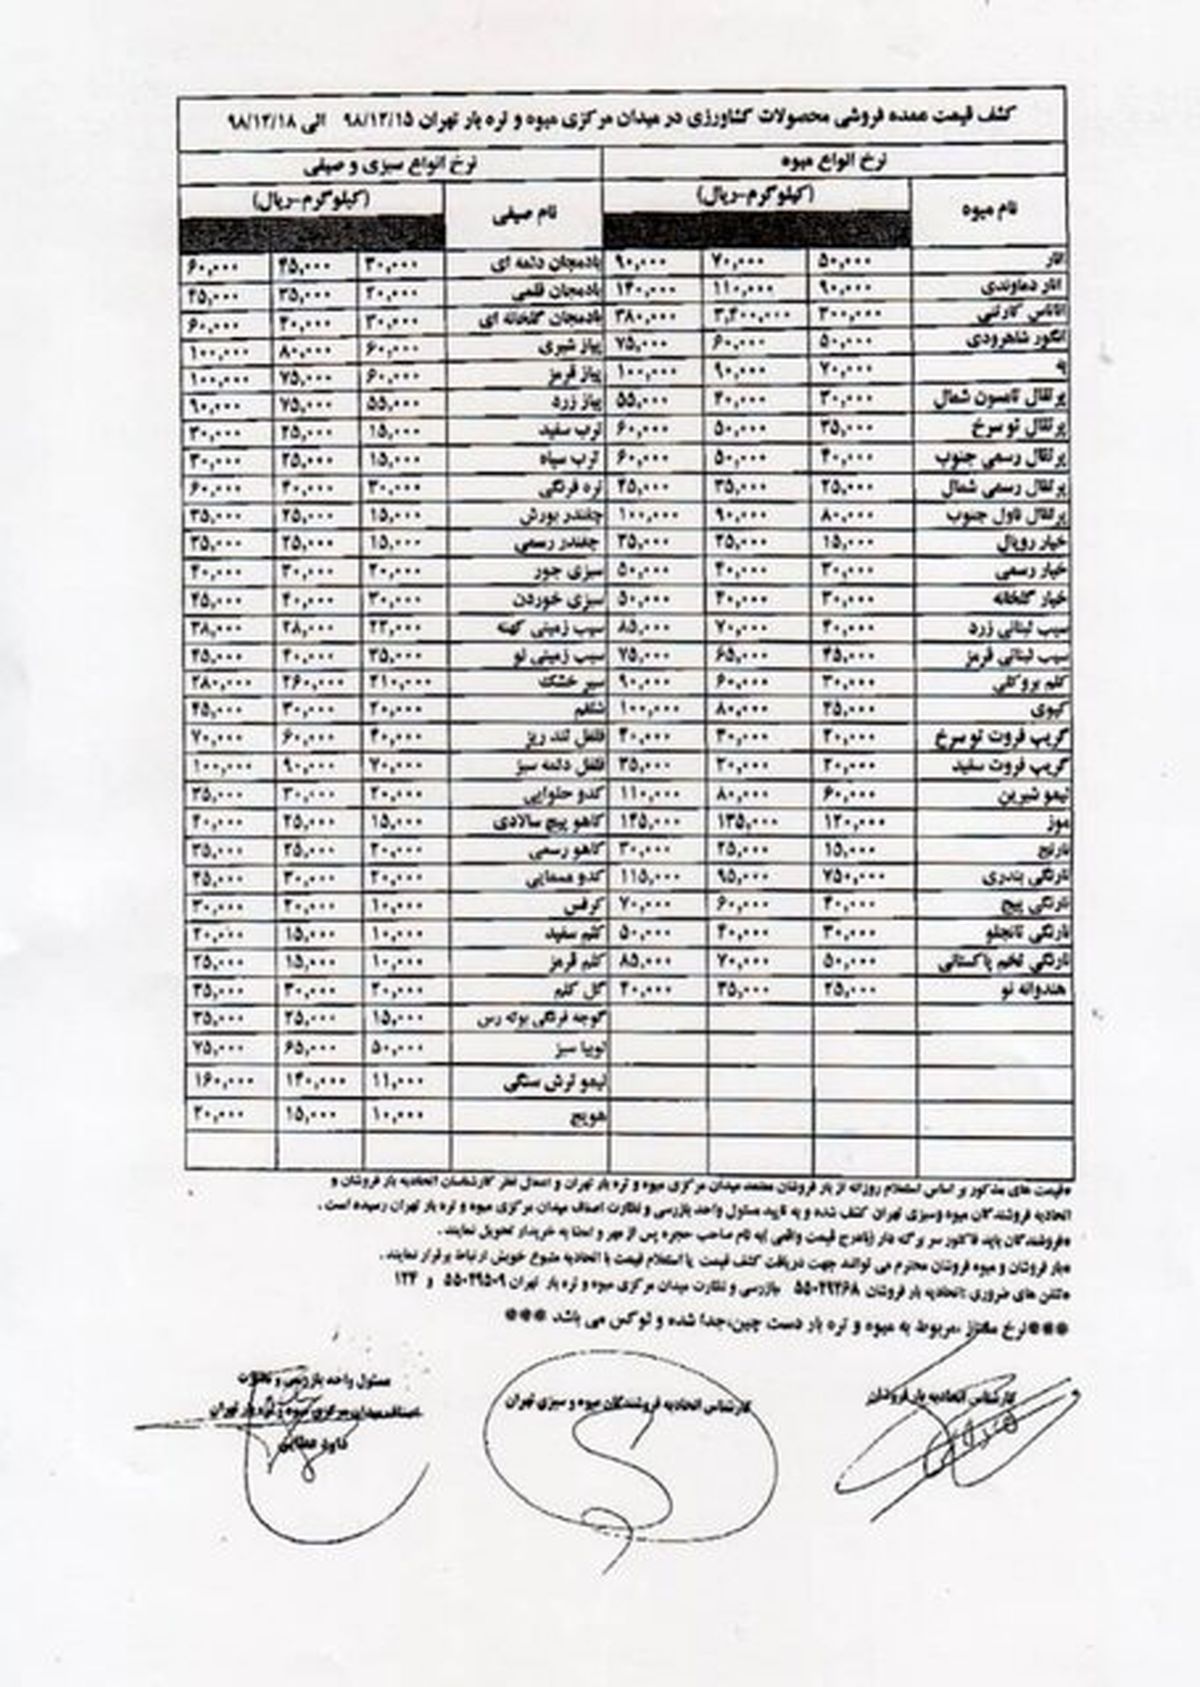 کشف قیمت عمده فروشی محصولات کشاورزی در میدان مرکزی میوه و تره بار تهران ۹۸/۱۲/۱۵ الی ۹۸/۱۲/۱۸
نرخ انواع میوه نرخ انواع سبزی و صیفی
نام میوه (کیلوگرم-ریال) نام صیفی (کیلوگرم-ریال)
انار ۵۰,۰۰۰ ۷۰,۰۰۰ ۹۰,۰۰۰ بادمجان دلمه ای ۳۰,۰۰۰ ۴۵,۰۰۰ ۶۰,۰۰۰
انار دماوندی ۹۰,۰۰۰ ۱۱۰,۰۰۰ ۱۴۰,۰۰۰ بادمجان قلمی ۲۰,۰۰۰ ۳۵,۰۰۰ ۴۵,۰۰۰
آناناس کارتنی ۳۰۰,۰۰۰ ۳,۴۰۰,۰۰۰ ۳۸۰,۰۰۰ بادمجان گلخانه ای ۳۰,۰۰۰ ۴۰,۰۰۰ ۶۰,۰۰۰
انگور شاهرودی ۵۰,۰۰۰ ۶۰,۰۰۰ ۷۵,۰۰۰ پیاز شیری ۶۰,۰۰۰ ۸۰,۰۰۰ ۱۰۰,۰۰۰
به ۷۰,۰۰۰ ۹۰,۰۰۰ ۱۰۰,۰۰۰ پیاز قرمز ۶۰,۰۰۰ ۷۵,۰۰۰ ۱۰۰,۰۰۰
پرتقال تامسون شمال ۳۰,۰۰۰ ۴۰,۰۰۰ ۵۵,۰۰۰ پیاز زرد ۵۵,۰۰۰ ۷۵,۰۰۰ ۹۰,۰۰۰
پرتقال تو سرخ ۳۵,۰۰۰ ۵۰,۰۰۰ ۶۰,۰۰۰ ترب سفید ۱۵,۰۰۰ ۲۵,۰۰۰ ۳۰,۰۰۰
پرتقال رسمی جنوب ۴۰,۰۰۰ ۵۰,۰۰۰ ۶۰,۰۰۰ ترب سیاه ۱۵,۰۰۰ ۲۵,۰۰۰ ۳۰,۰۰۰
پرتقال رسمی شمال ۲۵,۰۰۰ ۳۵,۰۰۰ ۴۵,۰۰۰ تره فرنگی ۳۰,۰۰۰ ۴۰,۰۰۰ ۶۰,۰۰۰
پرتقال ناول جنوب ۸۰,۰۰۰ ۹۰,۰۰۰ ۱۰۰,۰۰۰ چغندر بورش ۱۵,۰۰۰ ۲۵,۰۰۰ ۳۵,۰۰۰
خیار رویال ۱۵,۰۰۰ ۲۵,۰۰۰ ۳۵,۰۰۰ چغندر رسمی ۱۵,۰۰۰ ۲۵,۰۰۰ ۳۵,۰۰۰
خیار رسمی ۳۰,۰۰۰ ۴۰,۰۰۰ ۵۰,۰۰۰ سبزی جور ۲۰,۰۰۰ ۳۰,۰۰۰ ۴۰,۰۰۰
خیار گلخانه ۳۰,۰۰۰ ۴۰,۰۰۰ ۵۰,۰۰۰ سبزی خوردن ۳۰,۰۰۰ ۴۰,۰۰۰ ۴۵,۰۰۰
سیب لبنانی زرد ۴۰,۰۰۰ ۷۰,۰۰۰ ۸۵,۰۰۰ سیب زمینی کهنه ۲۲,۰۰۰ ۲۸,۰۰۰ ۳۸,۰۰۰
سیب لبنانی قرمز ۴۵,۰۰۰ ۶۵,۰۰۰ ۷۵,۰۰۰ سیب زمینی نو ۳۵,۰۰۰ ۴۰,۰۰۰ ۴۵,۰۰۰
کلم بروکلی ۳۰,۰۰۰ ۶۰,۰۰۰ ۹۰,۰۰۰ سیر خشک ۲۱۰,۰۰۰ ۲۶۰,۰۰۰ ۲۸۰,۰۰۰
کیوی ۴۵,۰۰۰ ۸۰,۰۰۰ ۱۰۰,۰۰۰ شلغم ۲۰,۰۰۰ ۳۰,۰۰۰ ۴۵,۰۰۰
گریپ فروت تو سرخ ۲۰,۰۰۰ ۳۰,۰۰۰ ۴۰,۰۰۰ فلفل تند ریز ۴۰,۰۰۰ ۶۰,۰۰۰ ۷۰,۰۰۰
گریپ فروت سفید ۲۰,۰۰۰ ۳۰,۰۰۰ ۳۵,۰۰۰ فلفل دلمه سبز ۷۰,۰۰۰ ۹۰,۰۰۰ ۱۰۰,۰۰۰
لیمو شیرین ۶۰,۰۰۰ ۸۰,۰۰۰ ۱۱۰,۰۰۰ کدو حلوایی ۲۰,۰۰۰ ۳۰,۰۰۰ ۳۵,۰۰۰
موز ۱۲۰,۰۰۰ ۱۳۵,۰۰۰ ۱۴۵,۰۰۰ کاهو پیچ سالادی ۱۵,۰۰۰ ۲۵,۰۰۰ ۴۰,۰۰۰
نارنج ۱۵,۰۰۰ ۲۵,۰۰۰ ۳۰,۰۰۰ کاهو رسمی ۲۰,۰۰۰ ۲۵,۰۰۰ ۳۵,۰۰۰
نارنگی بندری ۷۵۰,۰۰۰ ۹۵,۰۰۰ ۱۱۵,۰۰۰ کدو مسمایی ۲۰,۰۰۰ ۳۰,۰۰۰ ۴۵,۰۰۰
نارنگی پیج ۴۰,۰۰۰ ۶۰,۰۰۰ ۷۰,۰۰۰ کرفس ۱۰,۰۰۰ ۲۰,۰۰۰ ۳۰,۰۰۰
نارنگی تانجلو ۳۰,۰۰۰ ۴۰,۰۰۰ ۵۰,۰۰۰ کلم سفید ۱۰,۰۰۰ ۱۵,۰۰۰ ۲۰,۰۰۰
نارنگی تخم پاکستانی ۵۰,۰۰۰ ۷۰,۰۰۰ ۸۵,۰۰۰ کلم قرمز ۱۰,۰۰۰ ۱۵,۰۰۰ ۲۵,۰۰۰
هندوانه نو ۲۵,۰۰۰ ۳۵,۰۰۰ ۴۰,۰۰۰ گل کلم ۲۰,۰۰۰ ۳۰,۰۰۰ ۳۵,۰۰۰
گوجه فرنگی بوته رس ۱۵,۰۰۰ ۲۵,۰۰۰ ۳۵,۰۰۰
لوبیا سبز ۵۰,۰۰۰ ۶۵,۰۰۰ ۷۵,۰۰۰
لیمو ترش سنگی ۱۱,۰۰۰ ۱۴۰,۰۰۰ ۱۶۰,۰۰۰
هویج ۱۰,۰۰۰ ۱۵,۰۰۰ ۲۰,۰۰۰
*قیمت های مذکور بر اساس استعلام روزانه از بار فروشان معتمد میدان مرکزی میوه و تره بار تهران و اعمال نظر کارشناسان اتحادیه بار فروشان و
اتحادیه فروشندگان میوه وسبزی تهران کشف شده و به تایید مسئول واحد بازرسی و نظارت اصناف میدان مرکزی میوه و تره بار تهران رسیده است.
*فروشندگان باید فاکتور سر برگه دار (بادرج قیمت واقعی) به نام صاحب حجره پس از مهر و امضا به خریدار تحویل نمایند.
*بار فروشان و میوه فروشان محترم می توانند جهت دریافت کشف قیمت یا استعلام قیمت با اتحادیه متبوع خویش ارتباط برقرار نمایند.
*تلفن های ضروری :اتحادیه بار فروشان ۵۵۰۲۹۲۶۸ بازرسی و نظارت میدان مرکزی میوه و تره بار تهران ۵۵۰۲۹۵۰۹ و ۱۲۴
***نرخ ممتاز ،مربوط به میوه و تره بار دست چین،جدا شده و لوکس می باشد ***
کارشناس اتحادیه بار فروشان
کارشناس اتحادیه فروشندگان میوه و سبزی تهران
مسئول واحد بازرسی و نظارت
اصناف میدان مرکزی میوه و تره بار تهران
داود عطایی